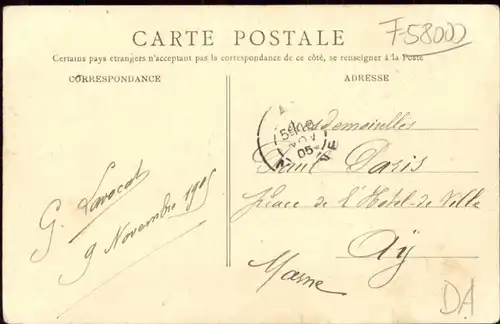 F-58000
CARTE POSTALE
Certains pays étrangers n'acceptant pas la correspondance de ce côté, se renseigner à la Poste
CORRESPONDANCE
ADRESSE
Mesdemoiselles
Paris
Place de l'Hotel-de Ville
Aÿ
Marne
G. Lavocat
9 Novembre 1905
05
DA